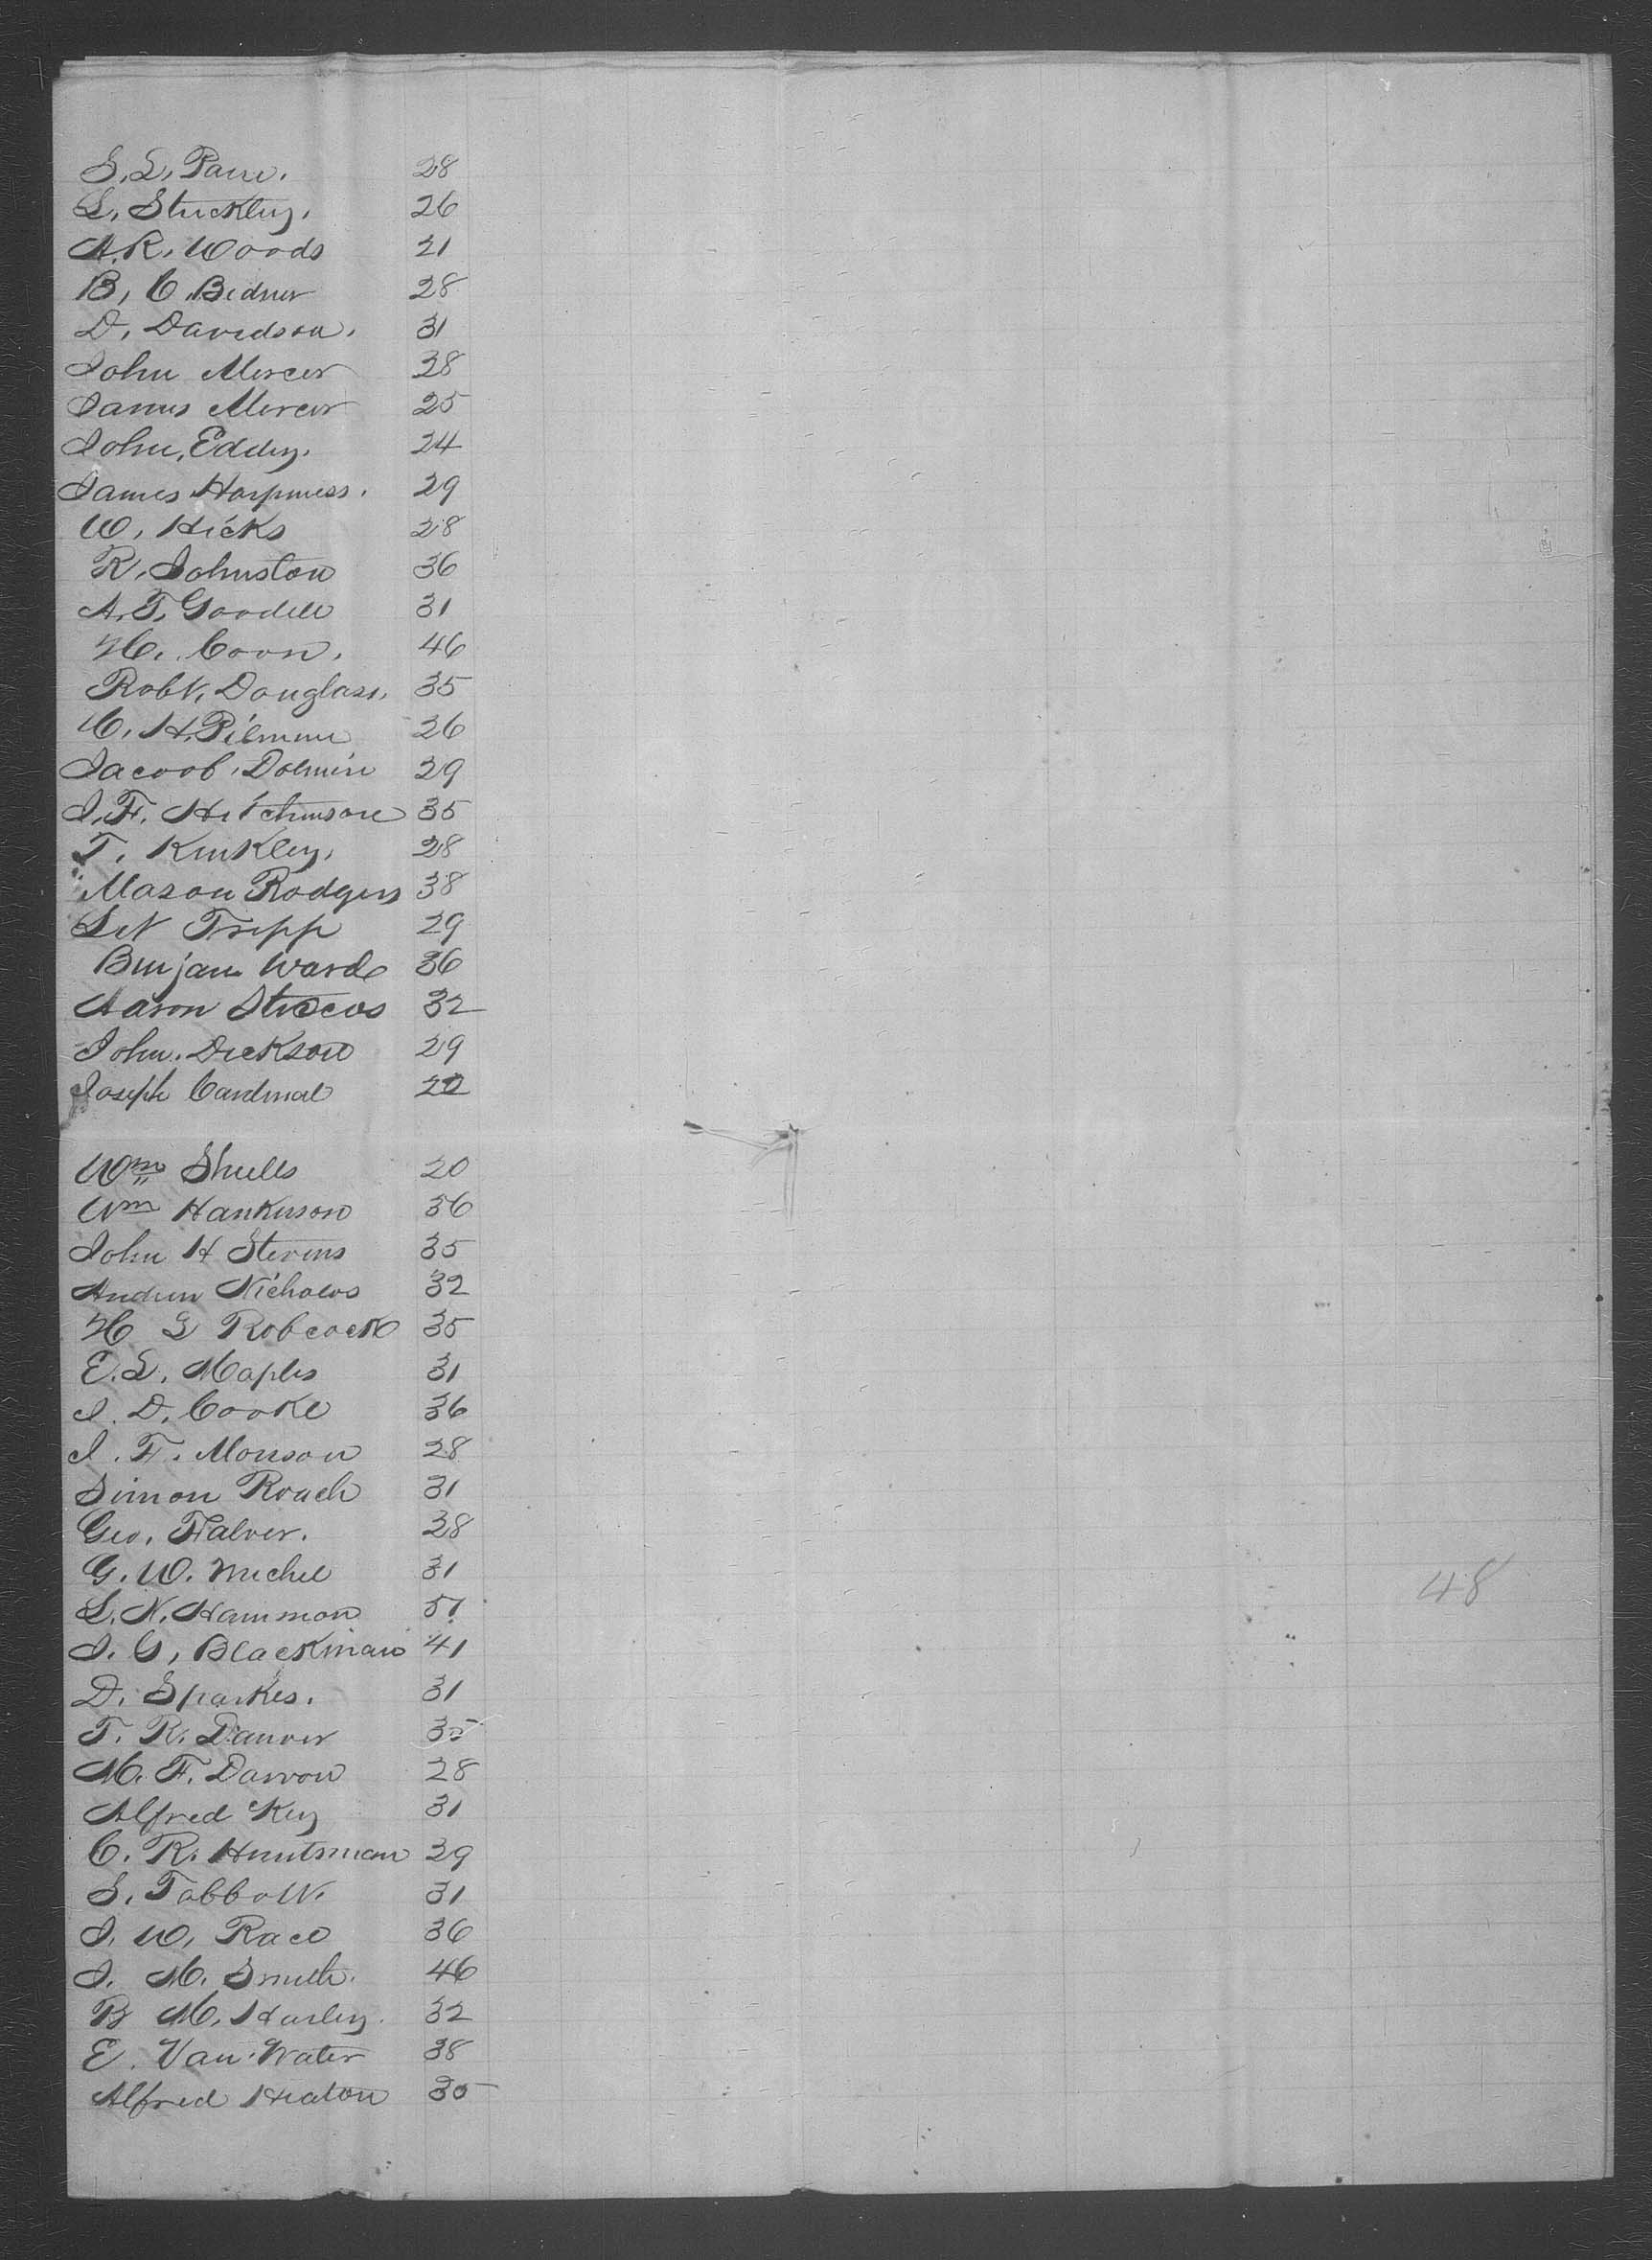 S. L. Pain. 28
L. Stuckley. 26
A. R. Woods 21
B. C. Bidner 28
D. Davidson. 31
John Mercer 38
James Mercer 25
John, Eddy. 24
James Harpmess. 29
W. Hicks 28
R. Johnston 36
A. T. Goodell 31
H. Coon. 46
Robt. Douglass. 35
C. H. 26
Jacoob. Dolmin 29
J. F. Hitchinson 35
T. Kinkley. 28
Mason Rodgers 38
Tripp 29
Benjam Ward 36
Aaron 32
John. Dickson 29
Joseph Cardinal 22
Wm Shells 20
Wm Hankinson 36
John H Stevens 35
Andrew Nicholos 32
H L Robcock 35
E. L. Maples 31
J. D. Cooke 36
J. F. Monson 28
Simon Roach 31
Geo. Falver. 28
G. W. Michel 31
L. N. Hammon 51
J. G. Blackman 41
D. Sparkes. 31
T. R. Danver 35
M. F. Darron 28
Alfred Key 31
C. R. Huntsman 29
S. Tabbott. 31
J. W. Race 36
J. M. Smith. 46
B M. Harley. 32
E. Van Water 38
Alfred Heaton 35
48